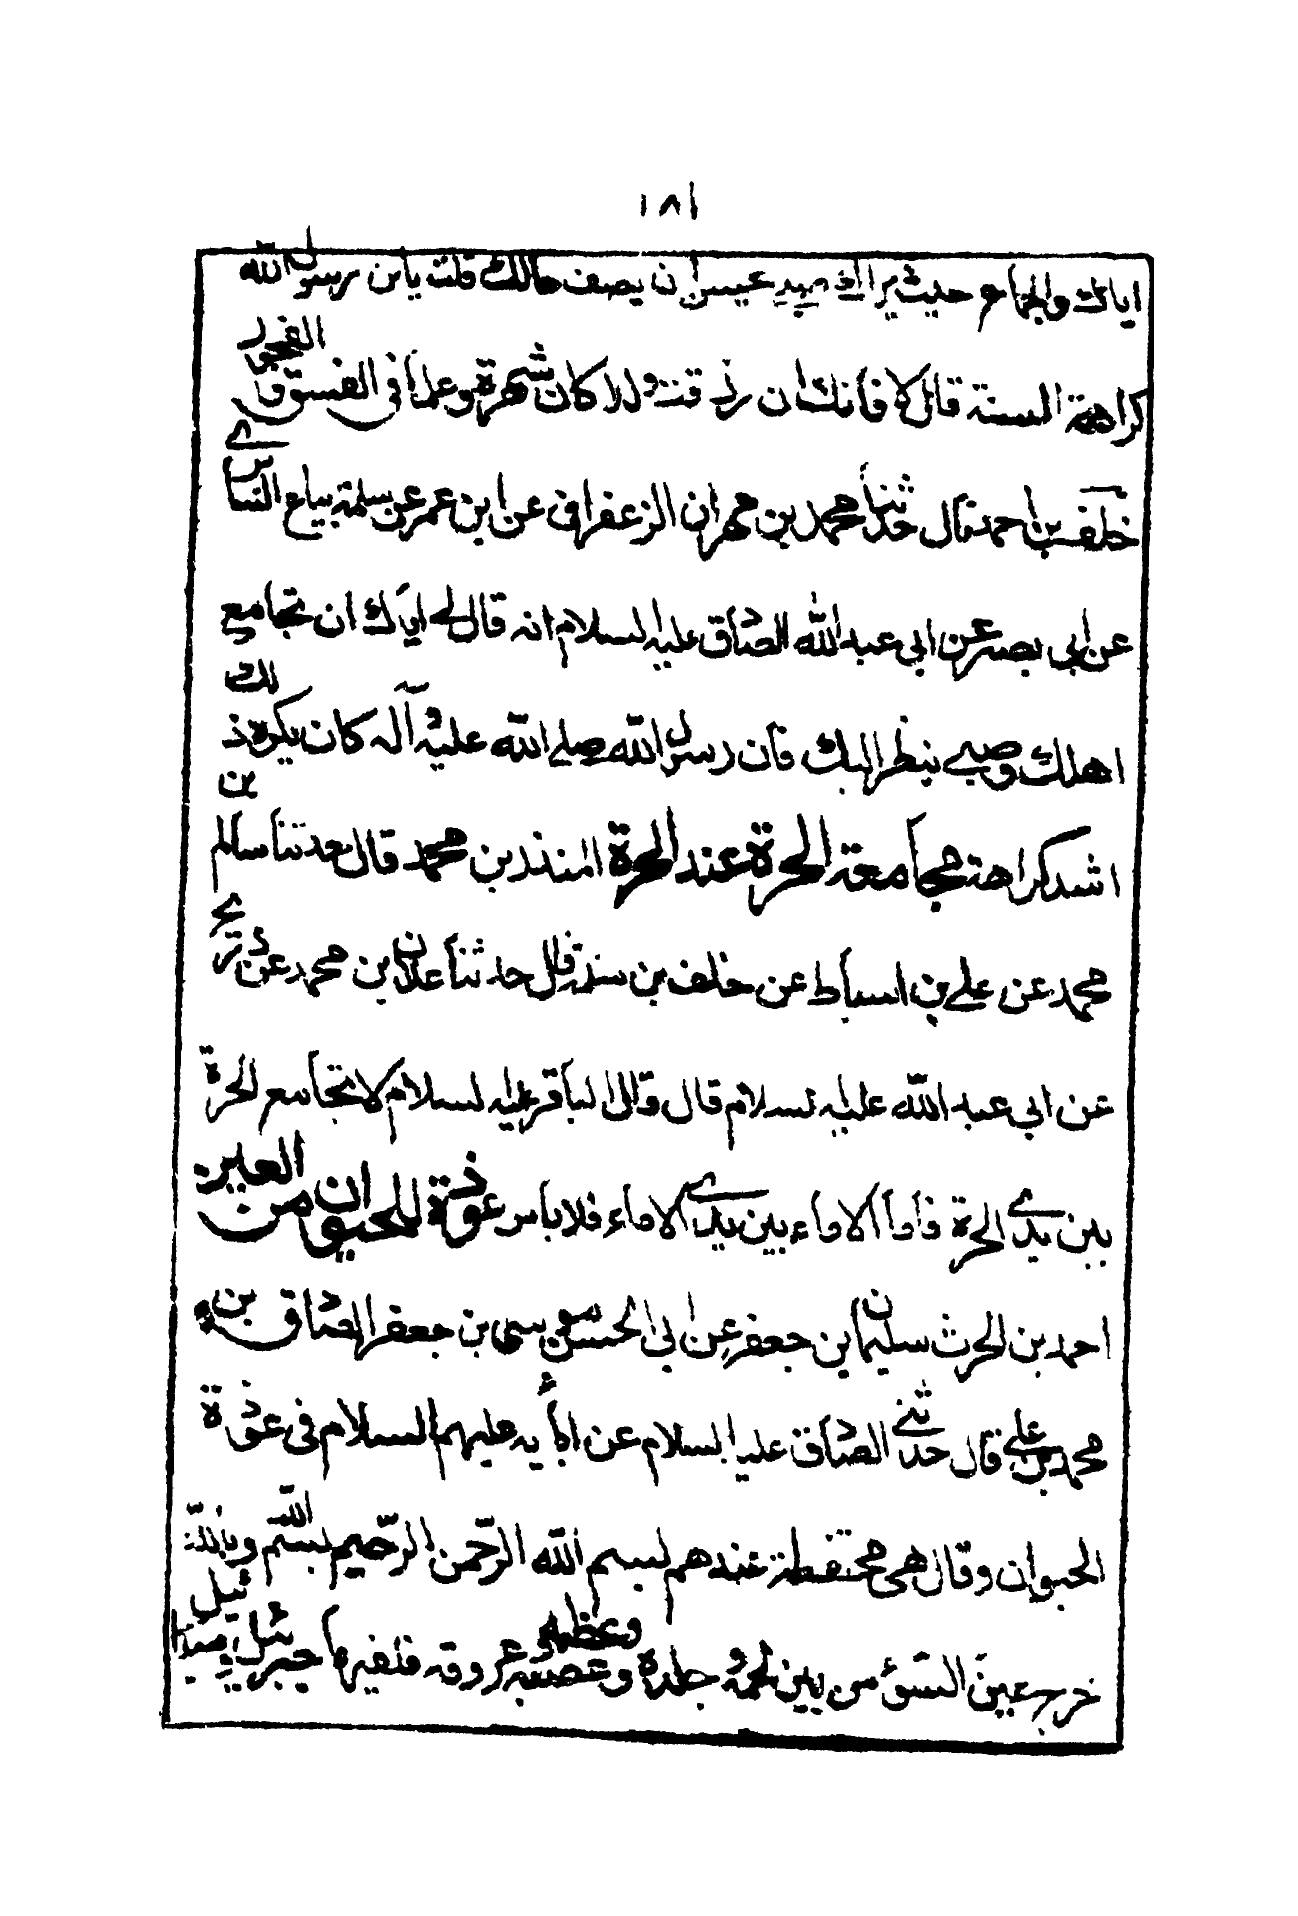 ١٨١
اياك والجماع حيث يراك صبي يحسن ان يصف حالك قلت يابن رسول الله
كراهية السنة قال لا فانك ان رزقت ولدا كان شهرة وعلما في الفسوق والفجور
خلف بن احمد قال حدثنا محمد بن مهران الزعفراني عن ابن عمر عن سلمة بياع السابري
عن ابي بصير عن ابي عبد الله الصادق عليه السلام انه قال لي اياك ان تجامع
اهلك وصبي ينظر اليك فان رسول الله صلى الله عليه وآله كان يكره ذلك
اشد كراهة مجامعة الحرة عند الحرة المنذر بن محمد قال حدثنا سالم بن
محمد عن علي بن اسباط عن خلف بن سلمة قال حدثنا علان بن محمد عن ذريح
عن ابي عبد الله عليه السلام قال وقال الباقر عليه السلام لا تجامع الحرة
بين يدي الحرة فأما الاماء بين يدي الاماء فلا بأس عوذة للحيوان من العين
احمد بن الحرث سليمان بن جعفر عن ابي الحسن موسى بن جعفر الصادق بن
محمد بن علي قال حدثني الصادق عليه السلام عن ابائه عليهم السلام في عوذة
الحيوان وقال هي محتفظة عندهم بسم الله الرحمن الرحيم بسم الله وبالله
خرج عين السوء من بين لحمه وجلده وعظمه وعصبه وعروقه فلقيها جبرئيل وميكائيل